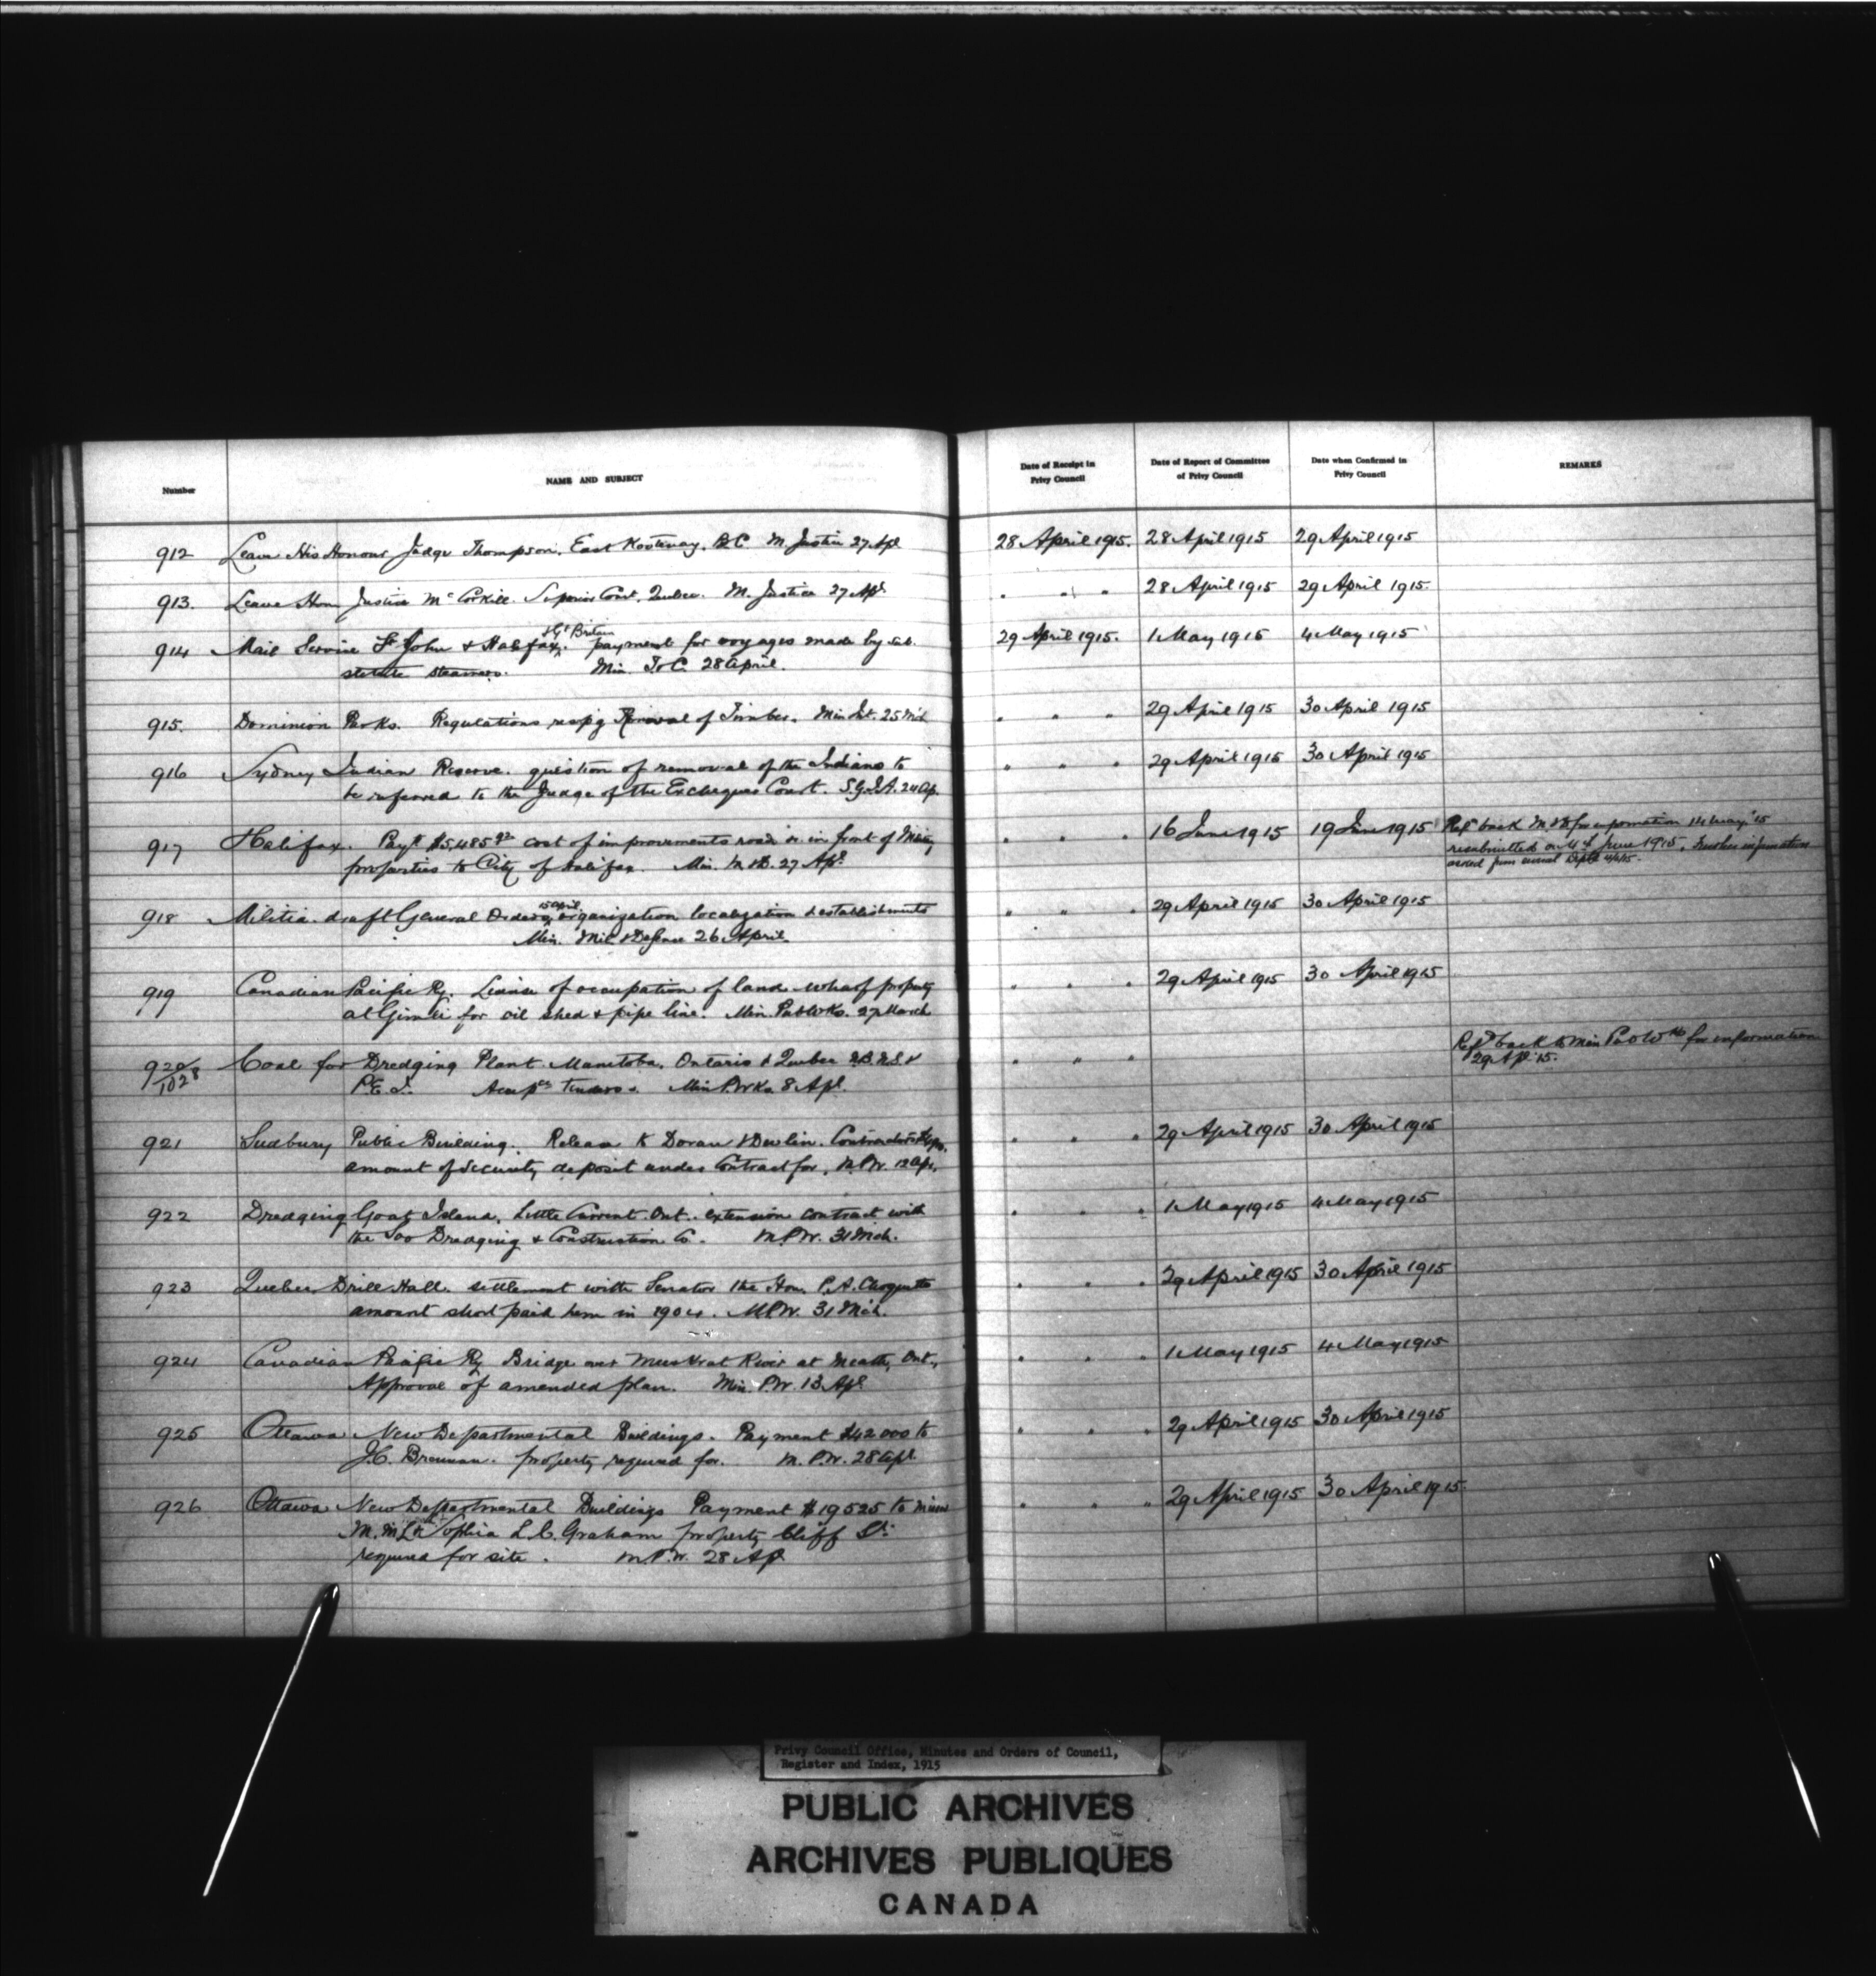 Number
NAME AND SUBJECT
Date of Receipt in
Privy Council
Date of Report of Committee
of Privy Council
Date when Confirmed in
Privy Council
REMARKS
912 Leave His Honour Judge Thompson, East Kootenay, B.C. M. Justice 27 Apl 28 April 1915. 28 April 1915 29 April 1915
913. Leave Hon Justice McCorkill. Superior Court, Quebec. M. Justice 27 Apl. " " " 28 April 1915 29 April 1915.
& Gt Britain
914 Mail Service St John & Halifax. payment for voyages made by sub- 29 April 1915. 1 May 1915 4 May 1915
stitute steamers. Min. T & C. 28 April.
915. Dominion Parks. Regulations resp'g Removal of Timber. Min Int. 25 Mch " " " 29 April 1915 30 April 1915
916 Sydney Indian Reserve. question of removal of the Indians to " " " 29 April 1915 30 April 1915
be referred to the Judge of the Exchequer Court. S.G.I.A. 24 Ap.
917 Halifax. Payt $5,485 92 cost of improvements road in front of " " " 16 June 1915 19 June 1915 Refd back M & D for information 14 May '15
properties to City of Halifax. Min. M & D. 27 Apl. resubmitted on 4th June 1915. Further information
asked from Dept
15 April
918 Militia. draft General Orders, organization localization & establishments " " " 29 April 1915 30 April 1915
Min. Mil & Defence 26 April.
919 Canadian Pacific Ry. License of occupation of land wharf property " " " 29 April 1915 30 April 1915
at Gimli for oil shed & pipe line. Min. Pub Wks. 27 March
920/1028 Coal for Dredging Plant Manitoba, Ontario & Quebec N.B. N.S. & " " " Refd back to Min Pub Wks for information
P.E.I. Accepce Tenders. Min P. Wks 8 Apl. 29 Apl. '15.
921 Sudbury Public Building. Release to Doran & Devlin. Contractors " " " 29 April 1915 30 April 1915
amount of security deposit under Contract for. M.P.W. 12 Apl.
922 Dredging Goat Island, Little Current Ont. extension contract with " " " 1 May 1915 4 May 1915
the Soo Dredging & Construction Co. M.P.W. 31 Mch.
923 Quebec Drill Hall. settlement with Senator the Hon. P.A. Choquette " " " 29 April 1915 30 April 1915
amount short paid him in 1904. M.P.W. 31 Mch.
924 Canadian Pacific Ry Bridge over Muskrat River at Meath, Ont., " " " 1 May 1915 4 May 1915
Approval of amended plan. Min. P.W. 13 Apl.
925 Ottawa New Departmental Buildings. Payment $42,000 to " " " 29 April 1915 30 April 1915
J.C. Brennan. property required for. M.P.W. 28 Apl.
926 Ottawa New Departmental Buildings Payment $19525 to Misses " " " 29 April 1915 30 April 1915.
Sophia L.C. Graham property Cliff St.
required for site. M.P.W. 28 Apl
Privy Council Office, Minutes and Orders of Council,
Register and Index, 1915
PUBLIC ARCHIVES
ARCHIVES PUBLIQUES
CANADA